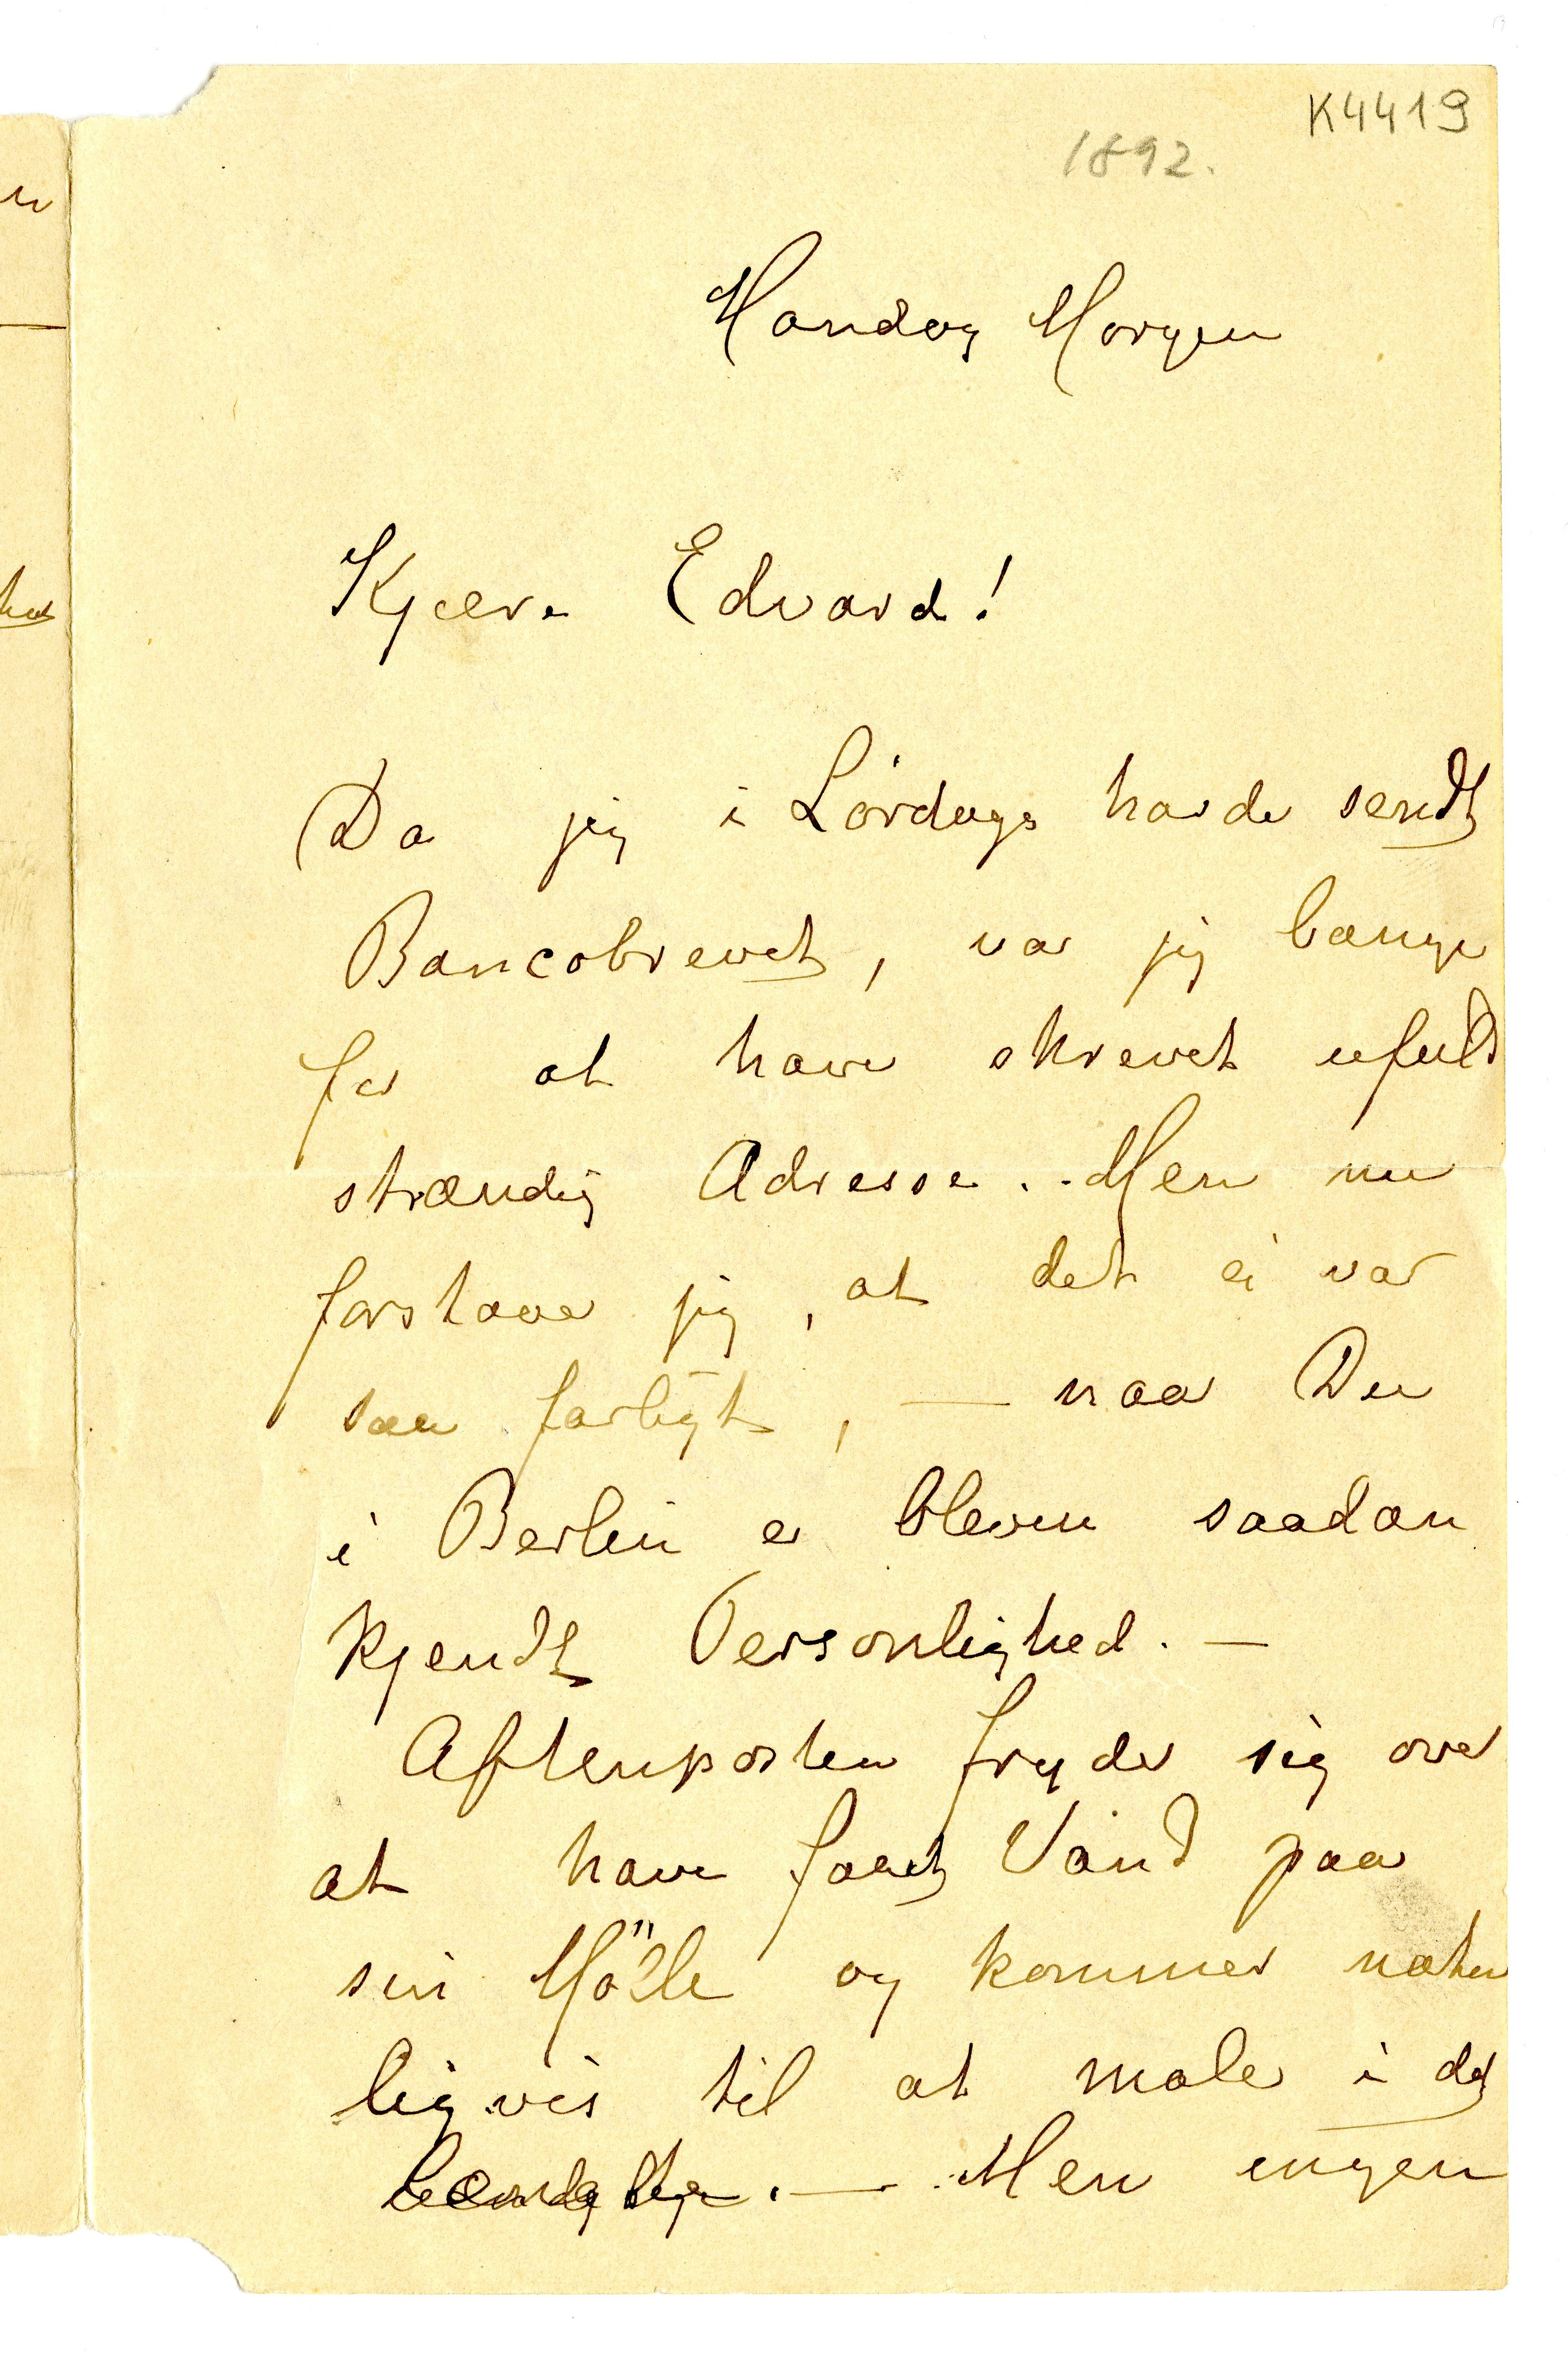 K4419
1892.
Mandag Morgen
Kjære Edvard!
Da jeg i Lördags havde sendt
Bancobrevet, var jeg bange
for at have skrevet ufuld
stændig Adresse.. Men nu
forstaar jeg, at det ei var
saa farligt, — naar Du
i Berlin er bleven saadan
kjendt Personlighed. —
Aftenposten fryder sig over
at have faaet Vand paa
sin Mölle og kommer natur
ligvis til at male i det
. — Men ingen